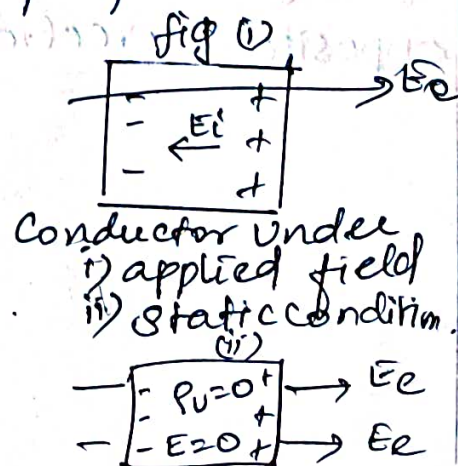 fig (i)
Ee
- +
- Ei +
- +
Conductor under
i) applied field
ii) static condition.
(ii)
- ρv=0 + Ee
- +
- E=0 + Ee